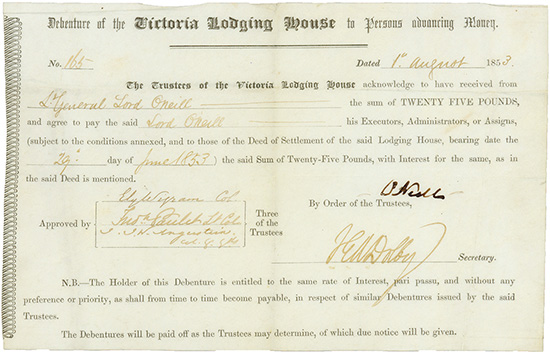 Debenture of the Victoria Lodging House to Persons advancing Money.
No. 165 Dated 1st August 1853
The Trustees of the Victoria Lodging House acknowledge to have received from
Lt General Lord O'Neill the sum of TWENTY FIVE POUNDS,
and agree to pay the said Lord O'Neill his Executors, Administrators, or Assigns,
(subject to the conditions annexed, and to those of the Deed of Settlement of the said Lodging House, bearing date the
29th day of June 1853) the said Sum of Twenty-Five Pounds, with Interest for the same, as in
the said Deed is mentioned.
Ely Wigram Col
O'Neill
By Order of the Trustees,
Approved by
Three of the Trustees
J. J. W. Angerstein
Secretary.
N.B.—The Holder of this Debenture is entitled to the same rate of Interest, pari passu, and without any
preference or priority, as shall from time to time become payable, in respect of similar Debentures issued by the said
Trustees.
The Debentures will be paid off as the Trustees may determine, of which due notice will be given.